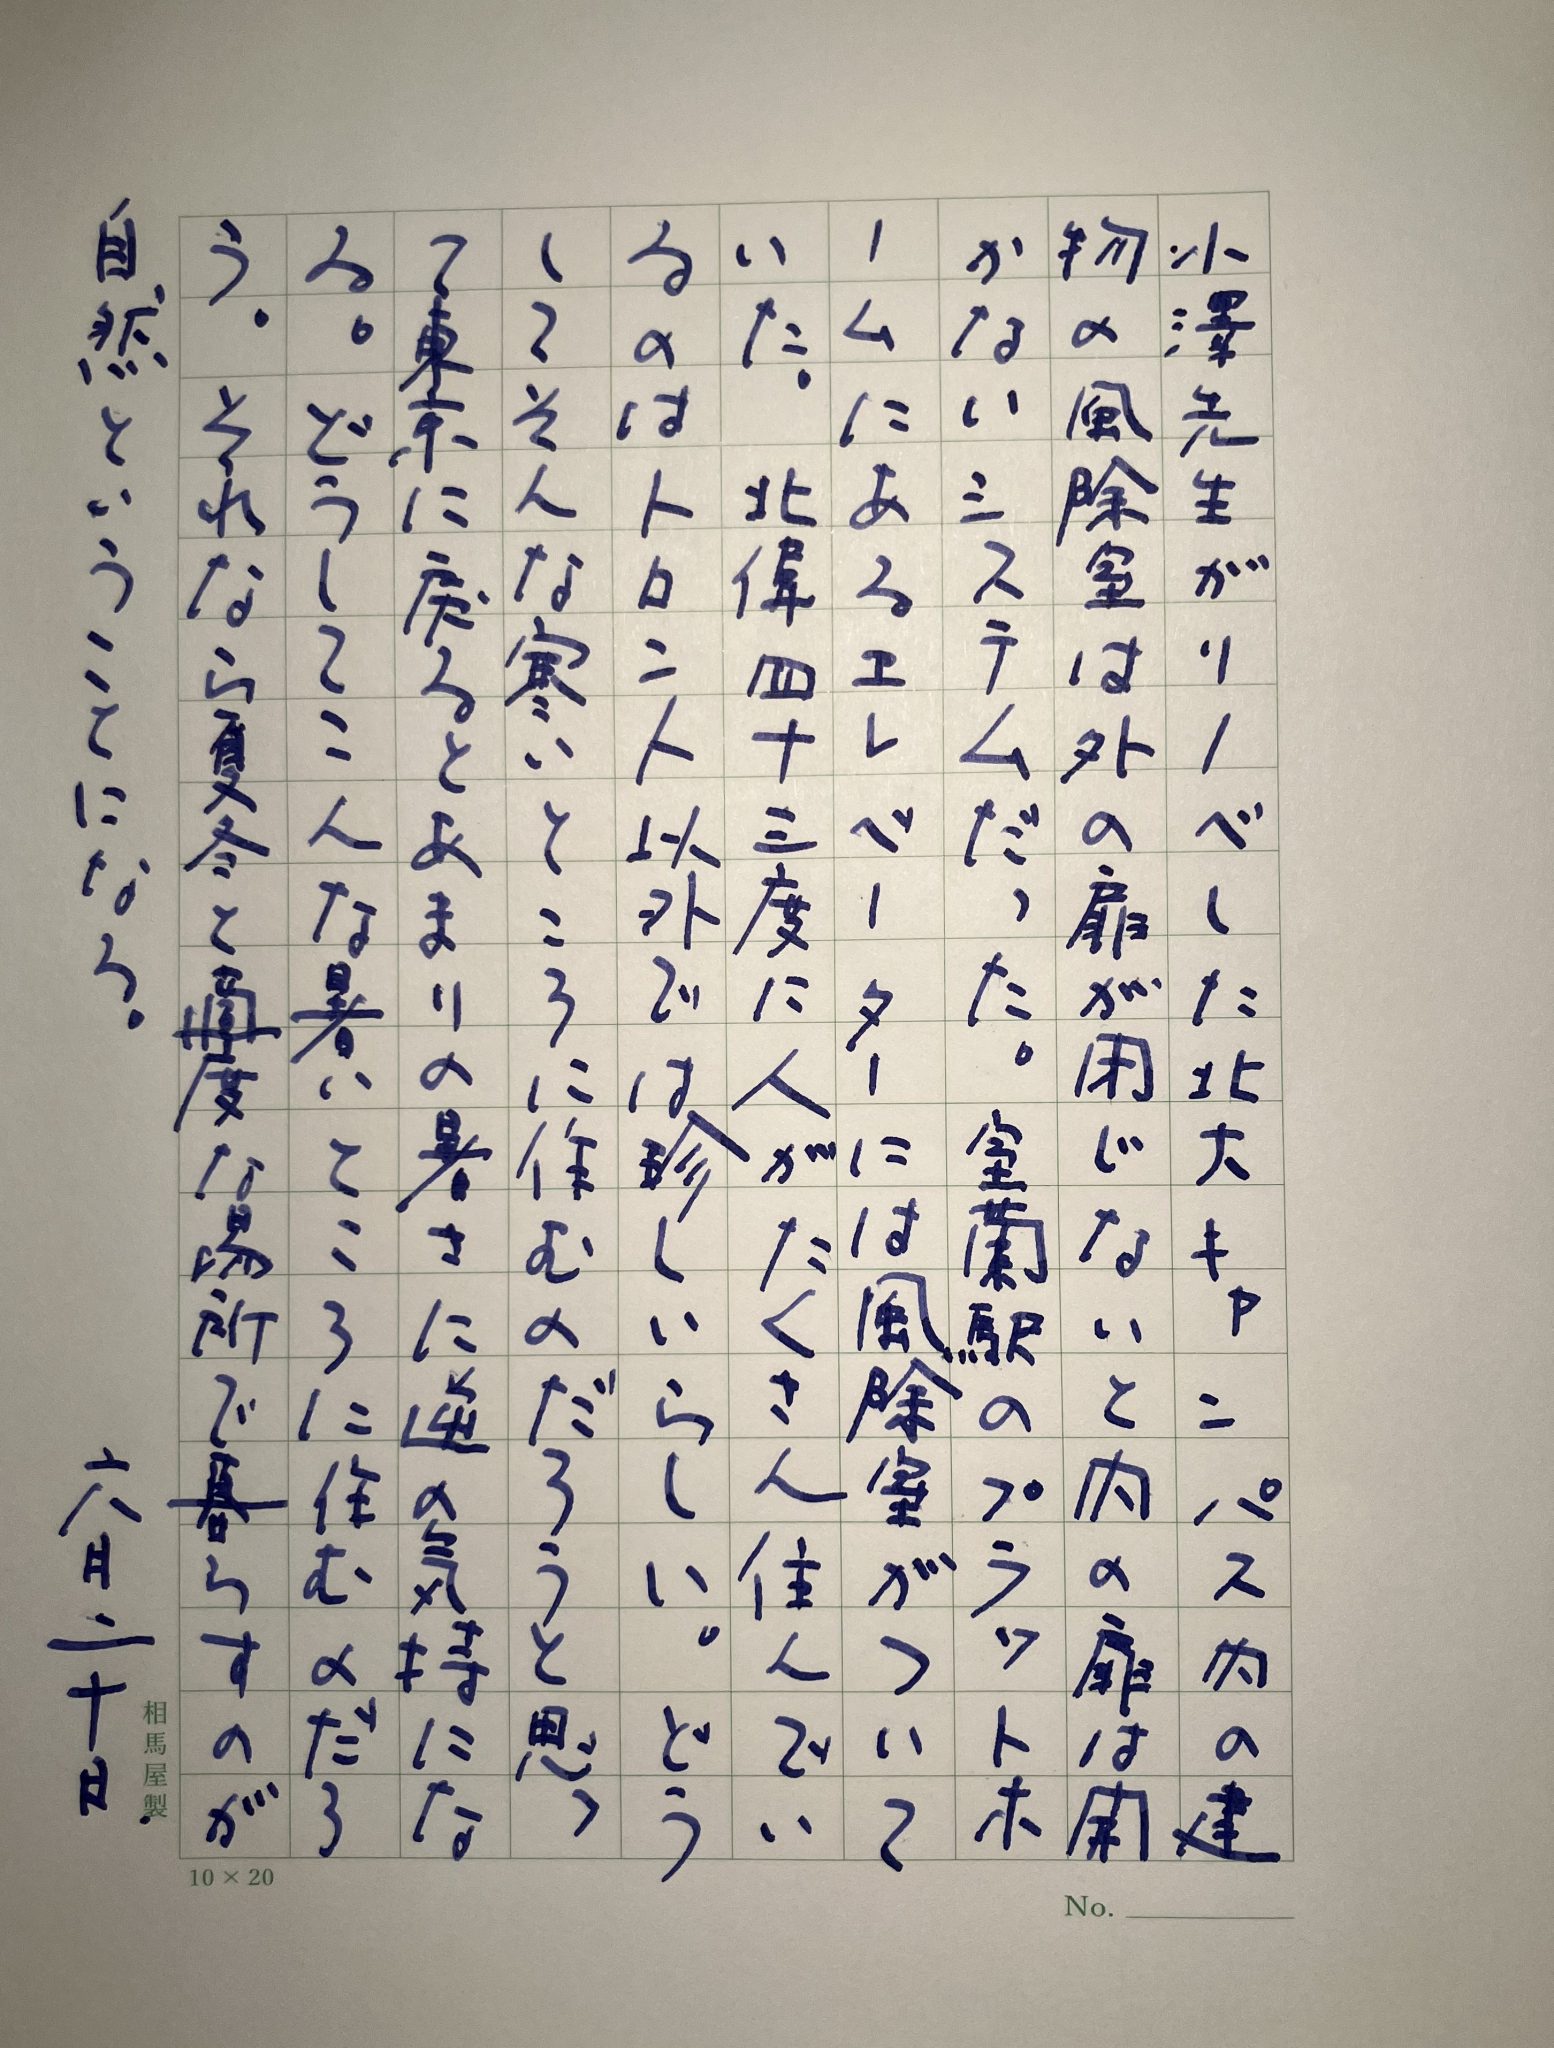 小澤先生がリノベした北大キャンパス内の建
物の風除室は外の扉が閉じないと内の扉は開
かないシステムだった。室蘭駅のプラットホ
ームにあるエレベーターには風除室がついて
いた。北偉四十三度に人がたくさん住んでい
るのはトロント以外では珍しいらしい。どう
してそんな寒いところに住むのだろうと思っ
て東京に戻るとあまりの暑さに逆の気持にな
る。どうしてこんな暑いところに住むのだろ
う。それなら夏冬と度な場所で暮らすのが
自然ということになる。
六月二十日
相馬屋製
10×20
No.